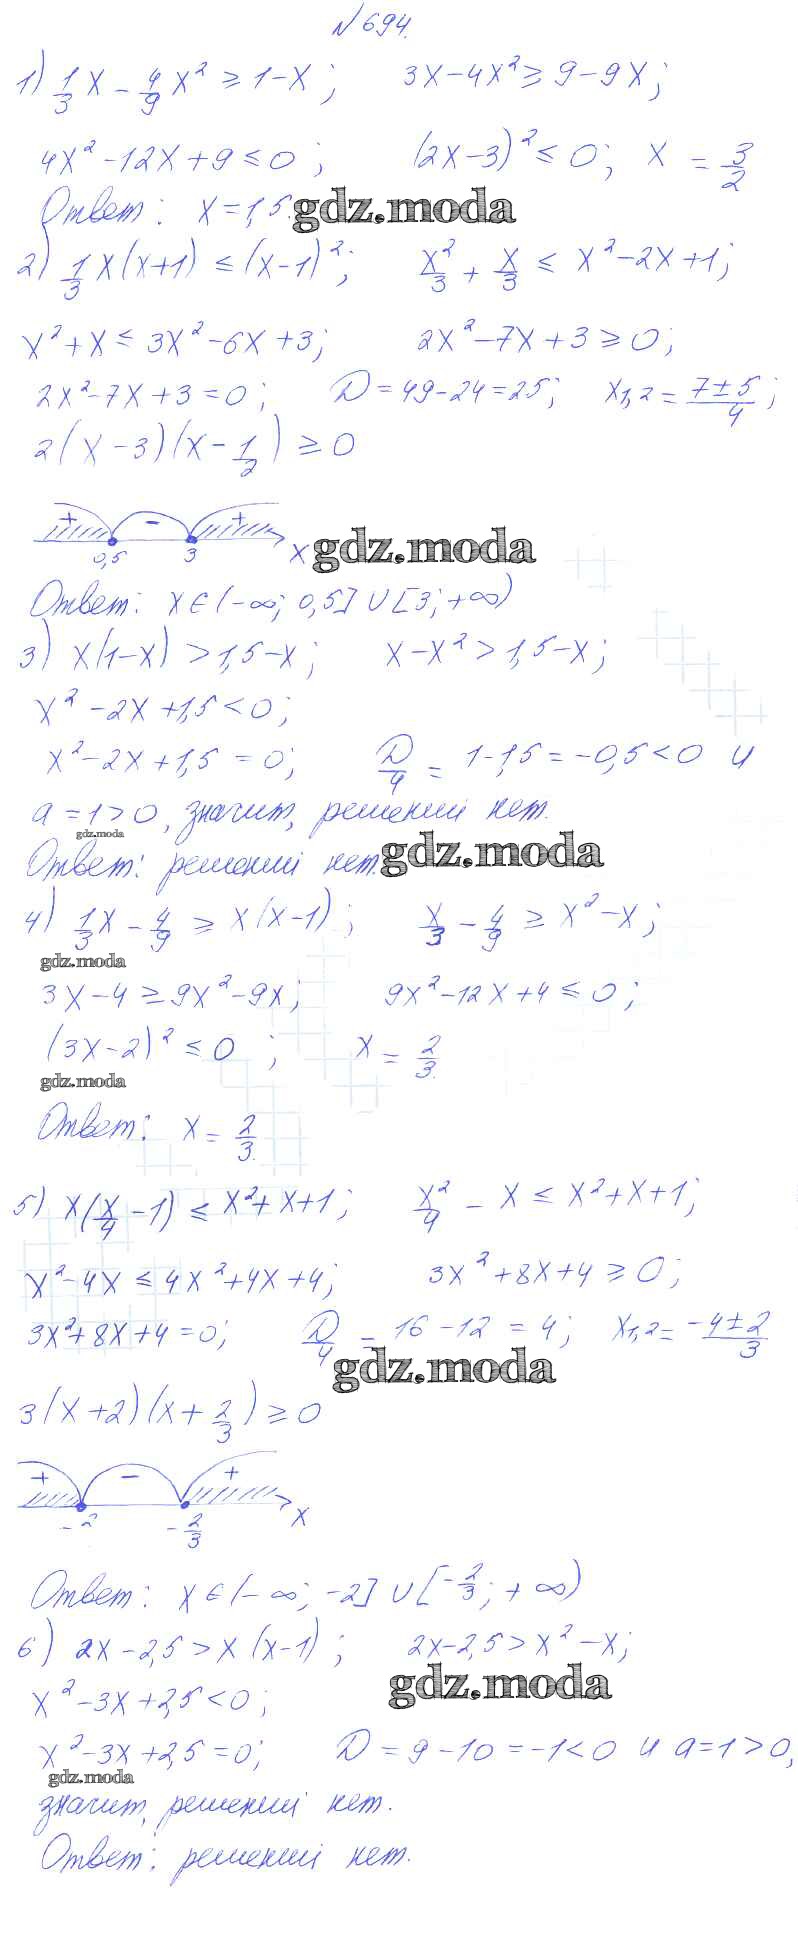 №694.
1) 1/3 x − 4/9 x² ≥ 1−x; 3x−4x² ≥ 9−9x;
4x²−12x+9 ≤ 0; (2x−3)² ≤ 0; x = 3/2
Ответ: x=1,5. gdz.moda
2) 1/3 x(x+1) ≤ (x−1)²; x²/3 + x/3 ≤ x²−2x+1;
x²+x ≤ 3x²−6x+3; 2x²−7x+3 ≥ 0;
2x²−7x+3=0; D=49−24=25; x1,2 = (7±5)/4;
2(x−3)(x−1/2) ≥ 0
+ − +
0,5 3 x gdz.moda
Ответ: x∈(−∞; 0,5]∪[3; +∞)
3) x(1−x) > 1,5−x; x−x² > 1,5−x;
x²−2x+1,5<0;
x²−2x+1,5=0; D/4 = 1−1,5=−0,5<0 и
a=1>0, значит, решений нет.
gdz.moda
Ответ: решений нет. gdz.moda
4) 1/3 x − 4/9 ≥ x(x−1); x/3 − 4/9 ≥ x²−x;
gdz.moda
3x−4 ≥ 9x²−9x; 9x²−12x+4 ≤ 0;
(3x−2)² ≤ 0; x = 2/3.
gdz.moda
Ответ: x = 2/3.
5) x(x/4 −1) ≤ x²+x+1; x²/4 − x ≤ x²+x+1;
x²−4x ≤ 4x²+4x+4; 3x²+8x+4 ≥ 0;
3x²+8x+4=0; D/4 = 16−12=4; x1,2 = (−4±2)/3
gdz.moda
3(x+2)(x+2/3) ≥ 0
+ − +
−2 −2/3 x
Ответ: x∈(−∞; −2]∪[−2/3; +∞)
6) 2x−2,5>x(x−1); 2x−2,5>x²−x;
gdz.moda
x²−3x+2,5<0;
x²−3x+2,5=0; D=9−10=−1<0 и a=1>0,
gdz.moda
значит, решений нет.
Ответ: решений нет.